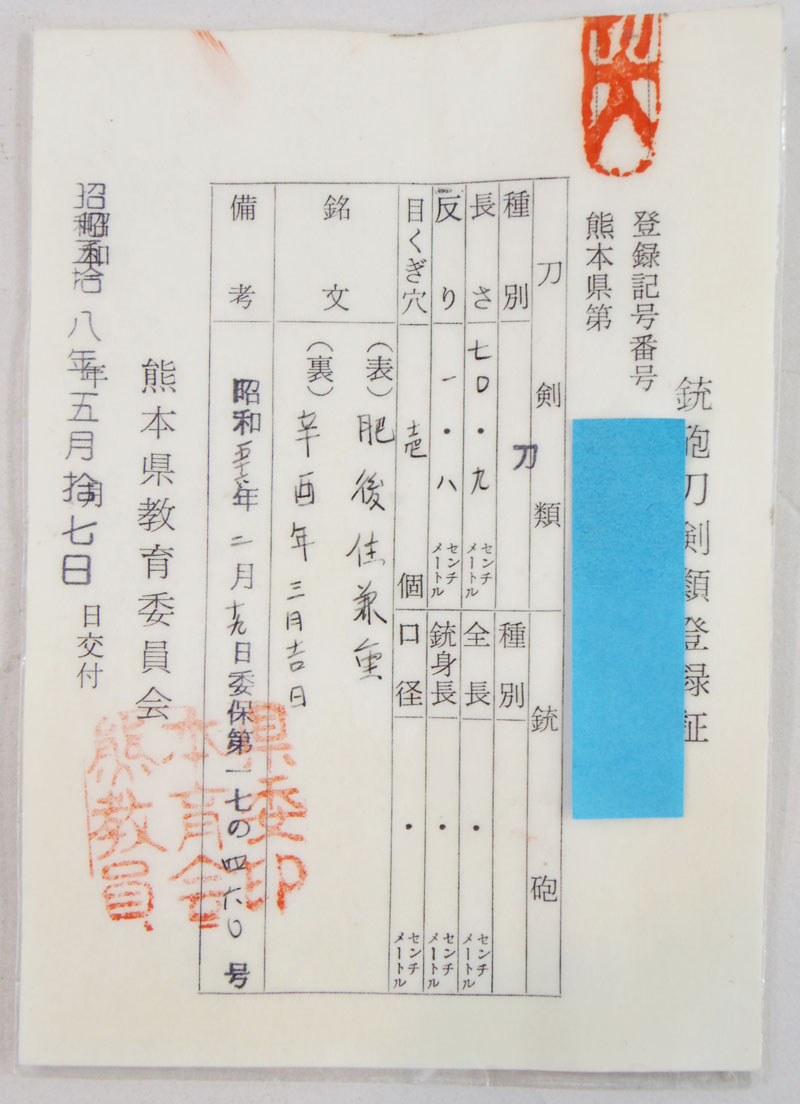 銃砲刀剣類登録証
登録記号番号
熊本県第
刀剣類
銃砲
種別
刀
種別
長さ
七〇・九
センチメートル
全長
・
センチメートル
反り
一・八
センチメートル
銃身長
・
センチメートル
目くぎ穴
壱
個
口径
・
センチメートル
銘文
(表)肥後住兼重
(裏)辛酉年三月吉日
備考
昭和
年二月
日委保第一七の四六〇号
昭和五拾八年五月拾七日
日交付
熊本県教育委員会
県委印
本育会
熊教員